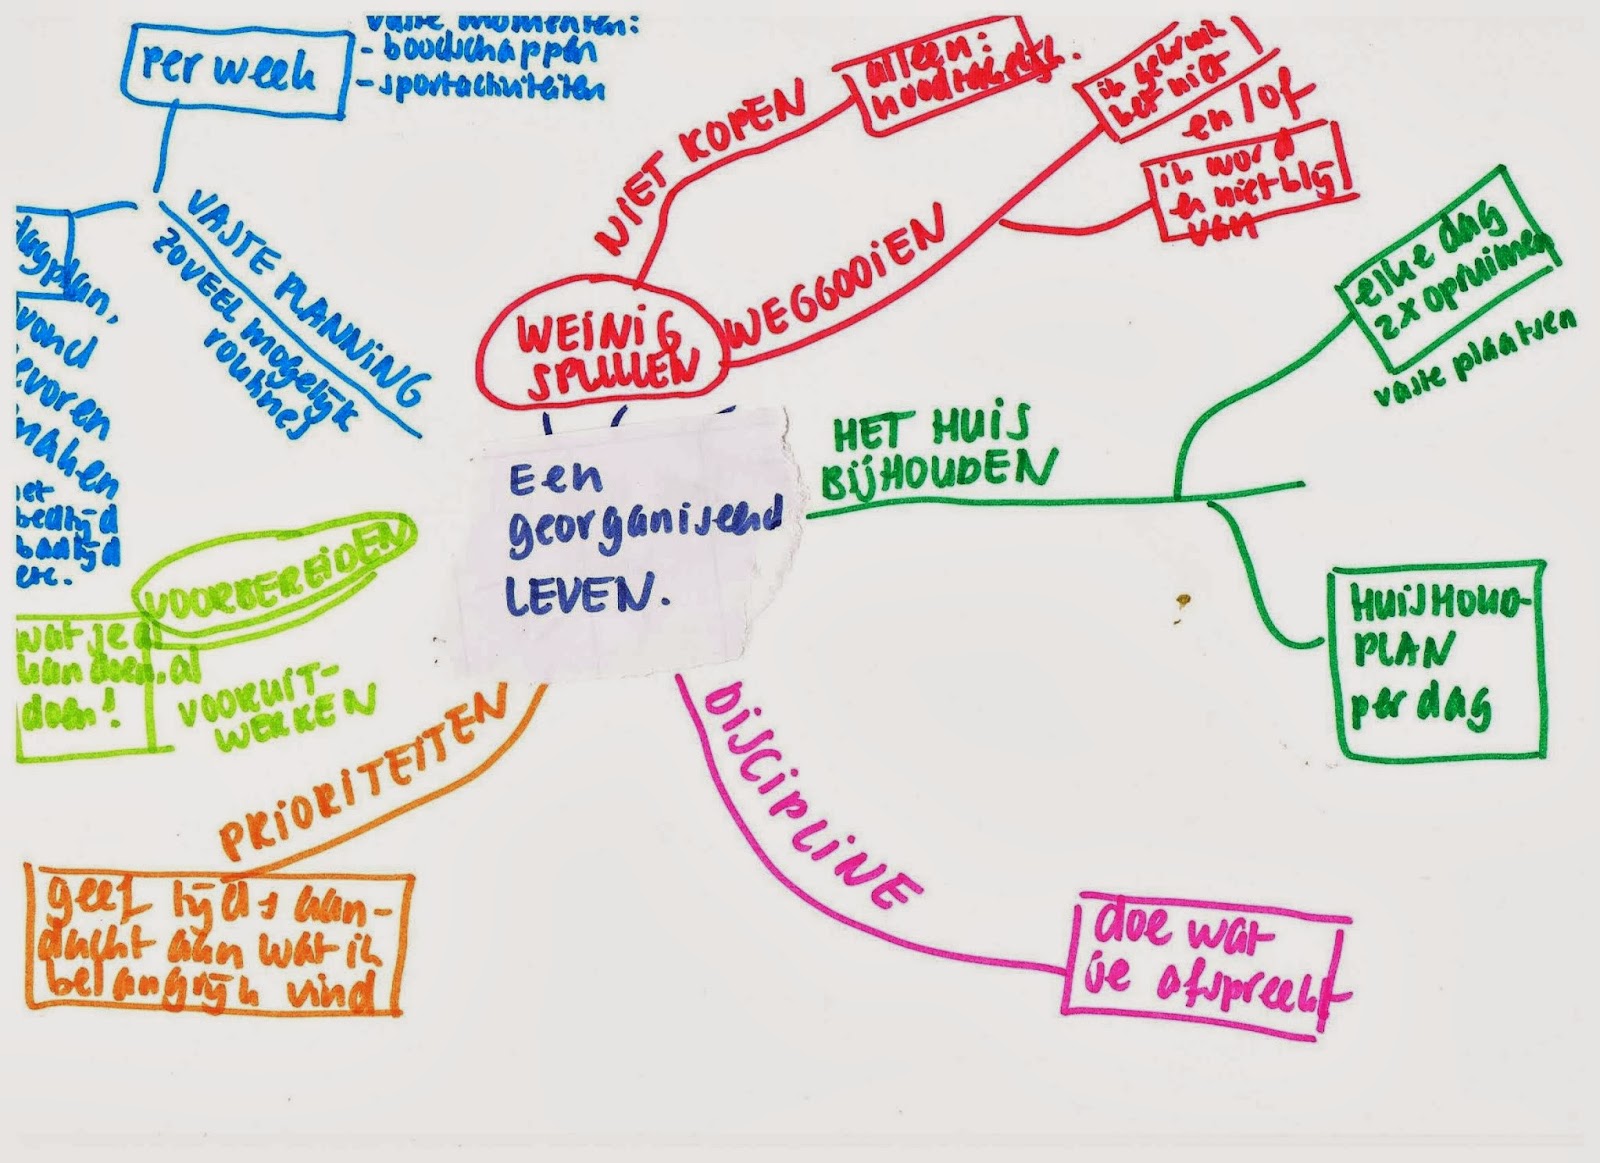 per week
vaste momenten:
- boodschappen
- sportactiviteiten
VASTE PLANNING
zoveel mogelijk
routines
dagplan,
avond
tevoren
maken
met
bedtijd
badtijd
etc.
NIET KOPEN
alleen:
noodzakelijk.
WEGGOOIEN
ik gebruik
het niet
en/of
ik word
er niet blij
van
WEINIG
SPULLEN
elke dag
2x opruimen
vaste plaatsen
HET HUIS
BIJHOUDEN
HUISHOUD-
PLAN
per dag
Een
georganiseerd
LEVEN.
VOORBEREIDEN
wat je al
kan doen, al
doen!
VOORUIT-
WERKEN
PRIORITEITEN
geef tijd + aan-
dacht aan wat ik
belangrijk vind
DISCIPLINE
doe wat
je afspreekt